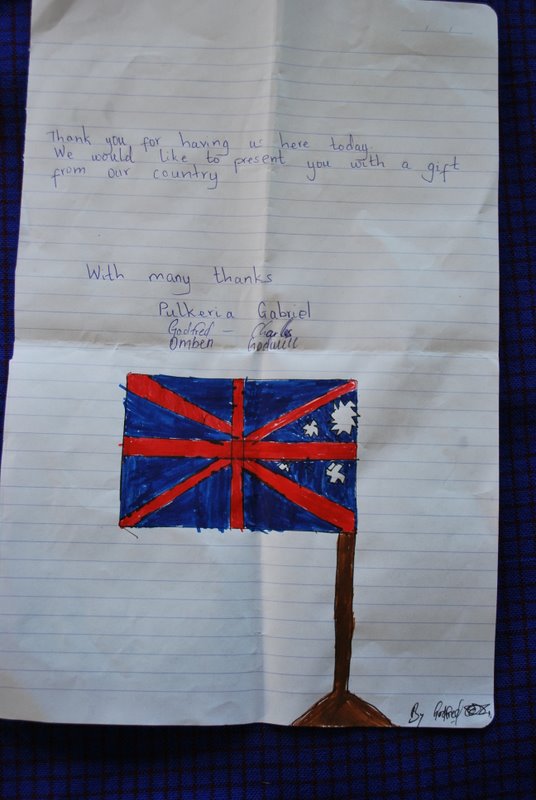 Thank you for having us here today.
We would like to present you with a gift
from our country
With many thanks
Pulkeria Gabriel
Godfred — Charles
Omben Godwell
By Godfred